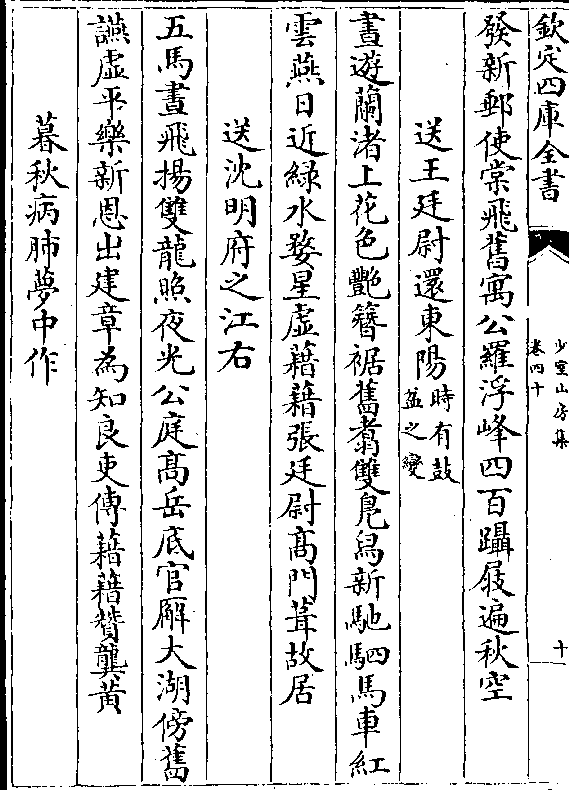 欽定四庫全書
少室山房集
卷四十
十
發新郵使棠飛舊寓公羅浮峰四百躡屐遍秋空
送王廷尉還東陽時有鼓
盆之變
晝遊蘭渚上花色艷簪裾舊翥雙鳬舄新馳駟馬車紅
雲燕日近緑水婺星虛藉藉張廷尉髙門葺故居
送沈明府之江右
五馬晝飛揚雙龍照夜光公庭髙岳底官廨大湖傍舊
讌虛平樂新恩出建章為知良吏傳藉藉贊龔黄
暮秋病肺夢中作